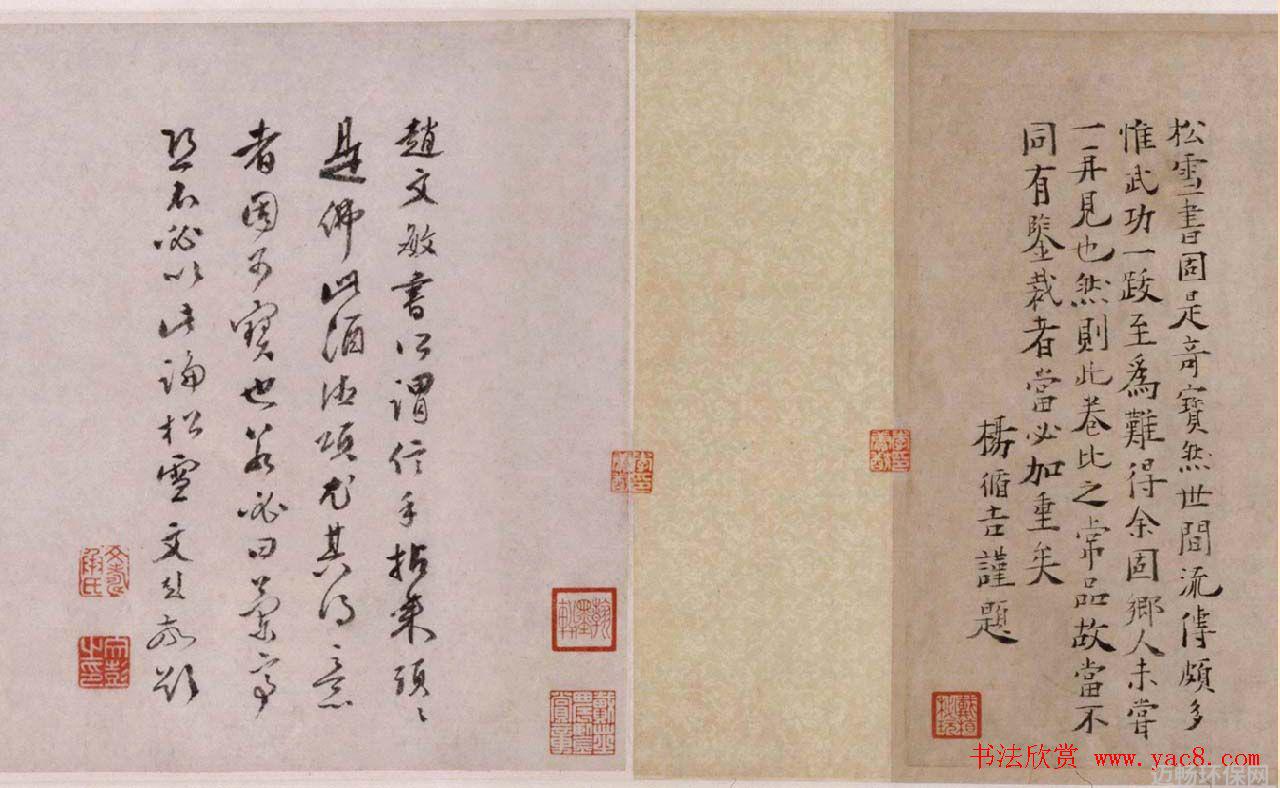 松雪書固是奇寶然世間流傳頗多
惟武功一跋至爲難得余固鄉人未嘗
一再見也然則此卷比之常品故當不
同有鑒裁者當必加重矣
楊循吉謹題
趙文敏書所謂信手拈來頭〻
是佛此酒德頌尤其得意
者固可寶也若必曰蘭亭
恐不必以此論松雪文彭敬題
文壽承氏
文彭之印
书法欣赏 www.yac8.com
迈畅环保网